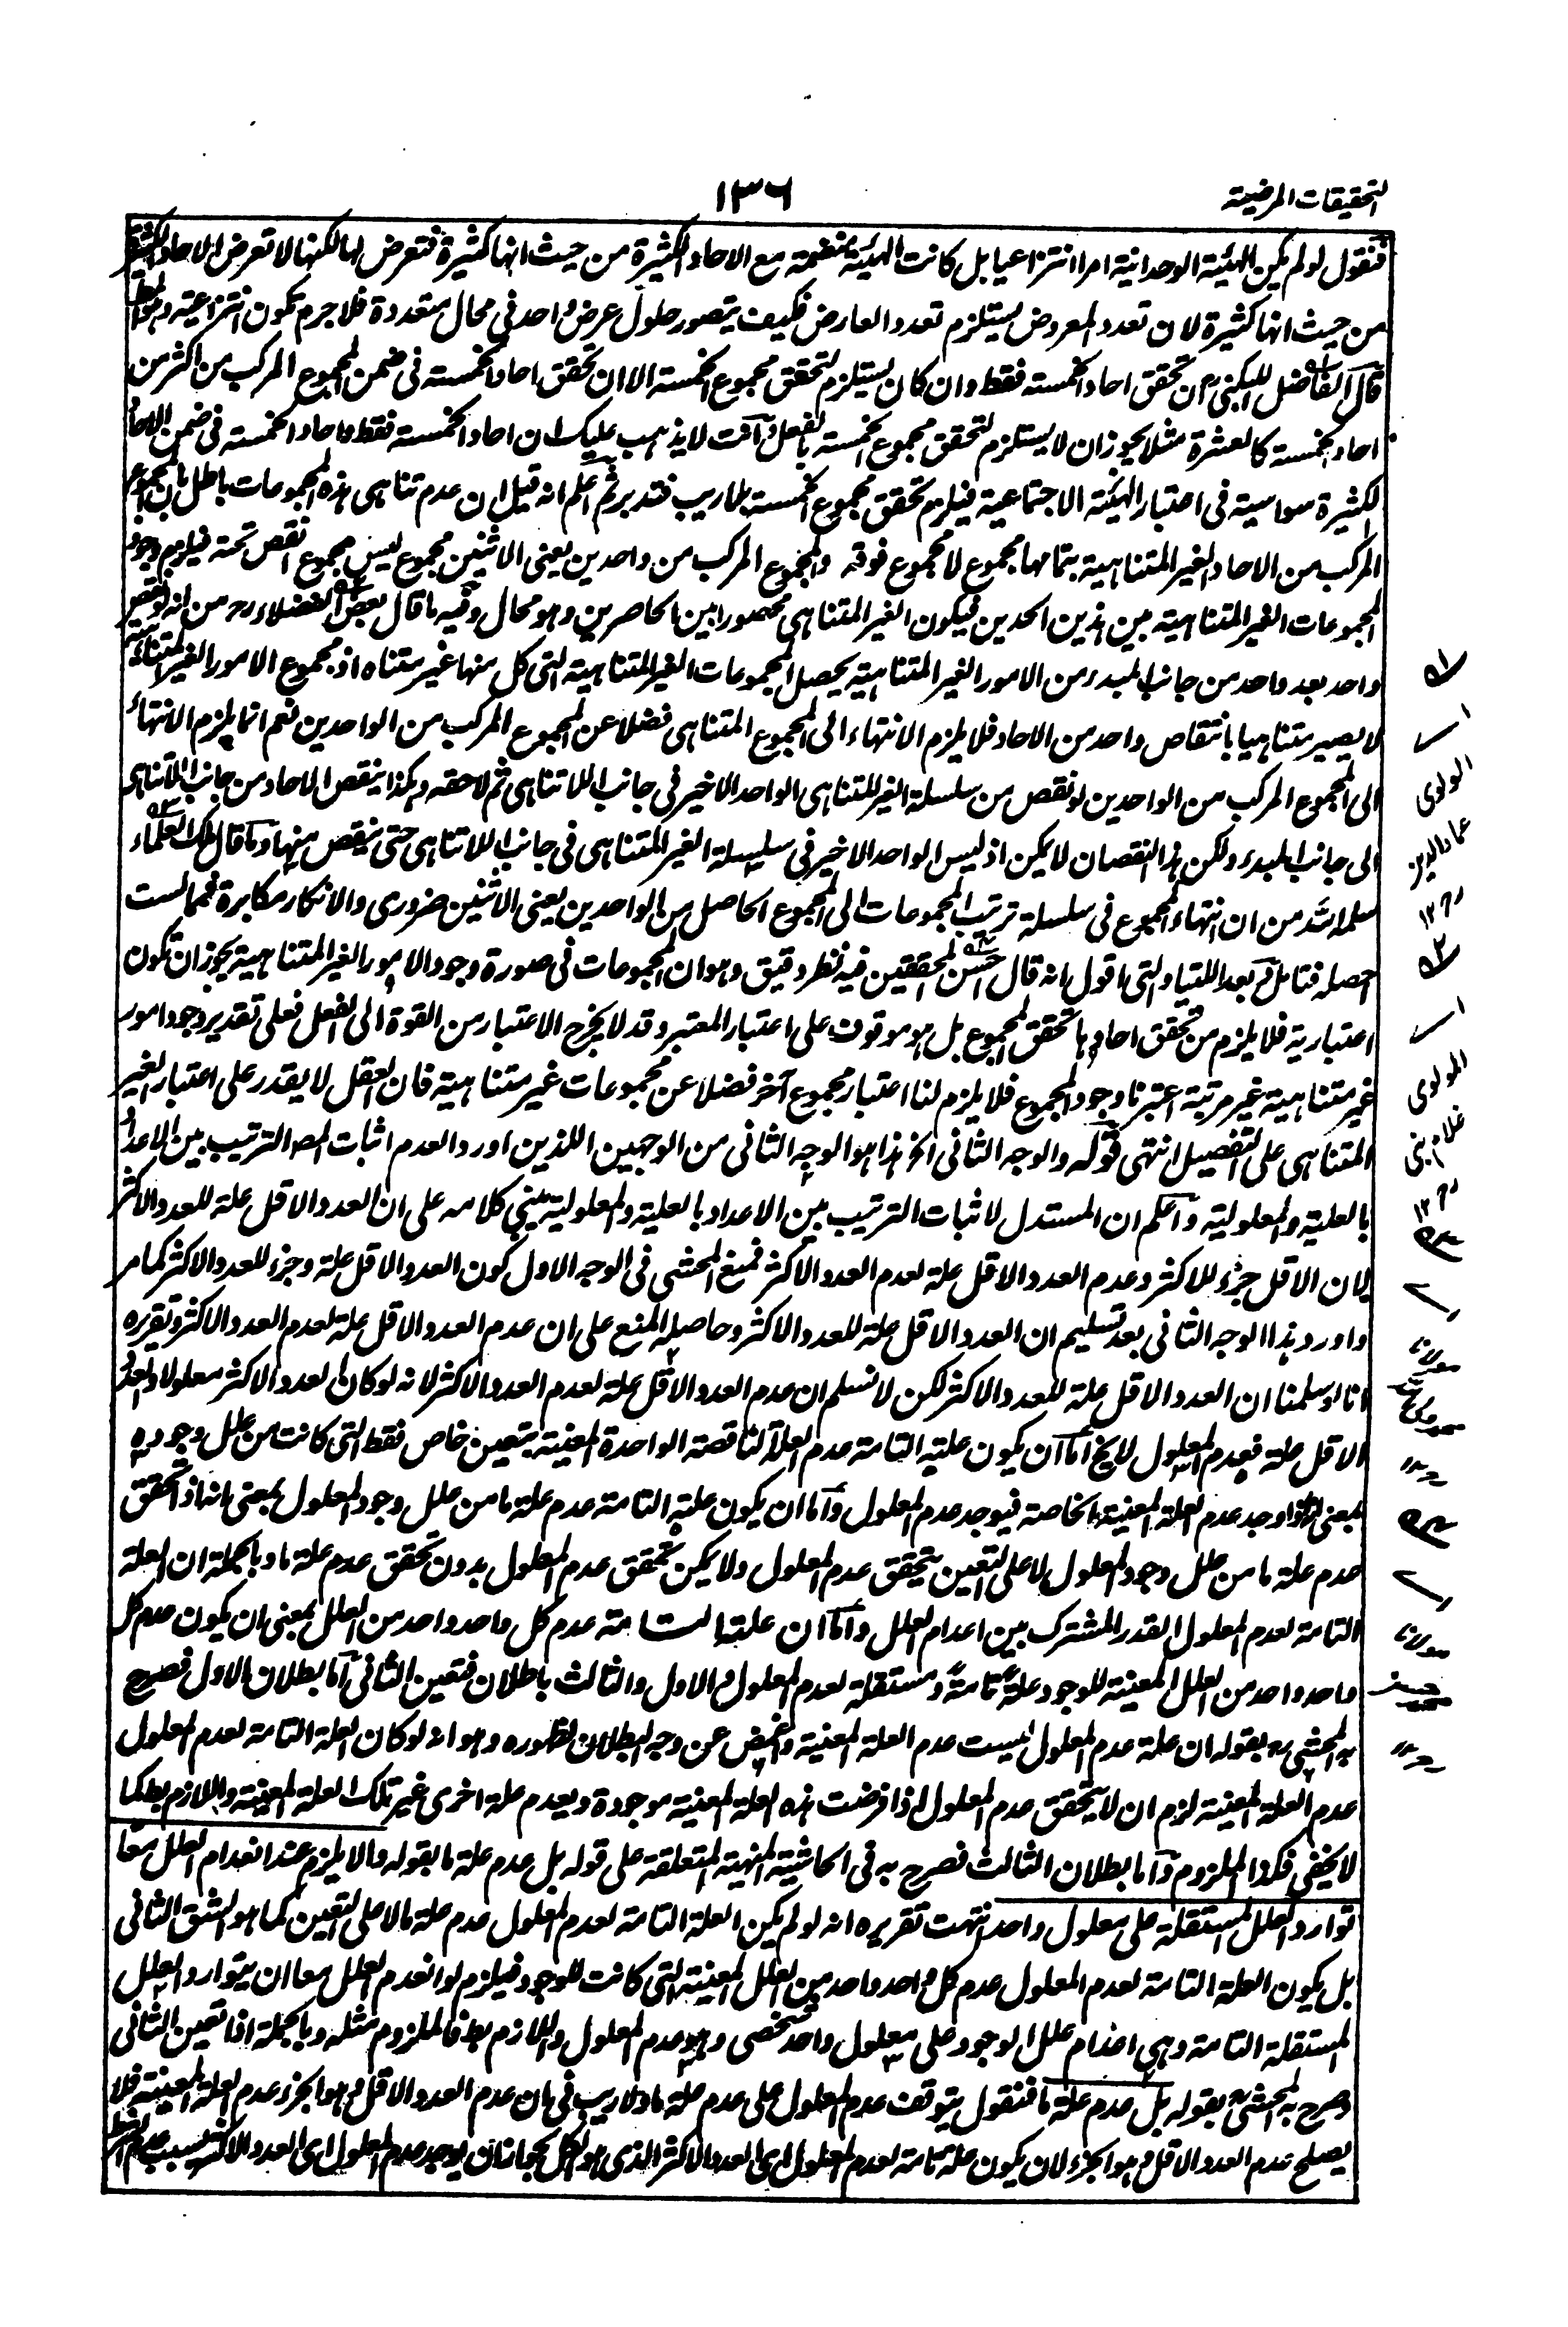 التحقيقات المرضية
١٣٦
فنقول لو لم يكن الهيئة الوحدانية امرا انتزاعيا بل كانت الهيئة منضمة مع الاحاد الكثيرة من حيث انها كثيرة فتعرض لها لكنها لا تعرض الاحاد الكثيرة
من حيث انها كثيرة لان تعدد المعروض يستلزم تعدد العارض فكيف يتصور حلول عرض واحد في محال متعددة فلا جرم تكون انتزاعية وهو المط
قال الفاضل اللبكني رم ان تحقق احاد الخمسة فقط وان كان يستلزم لتحقق مجموع الخمسة الا ان تحقق احاد الخمسة في ضمن المجموع المركب من اكثر من
احاد الخمسة كالعشرة مثلا يجوز ان لا يستلزم لتحقق مجموع الخمسة بالفعل وآنت لا يذهب عليك ان احاد الخمسة فقط واحاد الخمسة في ضمن الاحاد
الكثيرة سواسية في اعتبار الهيئة الاجتماعية فيلزم تحقق مجموع الخمسة بلا ريب فتدبر ثم اعلم انه قيل ان عدم تناهي هذه المجموعات باطل بان المجموع
المركب من الاحاد الغير المتناهية بتمامها مجموع لا مجموع فوقه والمجموع المركب من واحدين يعنى الاثنين مجموع ليس مجموع انقص تحته فيلزم وجود
المجموعات الغير المتناهية بين هذين الحدين فيكون الغير المتناهي محصورا بين الحاصرين وهو محال وفيه ما قال بعض الفضلاء رح من انه لو نقص
واحد بعد واحد من جانب المبدء من الامور الغير المتناهية يحصل المجموعات الغير المتناهية التي كل منها غير متناه اذ مجموع الامور الغير المتناهية
لا يصير متناهيا بانتقاص واحد من الاحاد فلا يلزم الانتهاء الى المجموع المتناهي فضلا عن المجموع المركب من الواحدين نعم انما يلزم الانتهاء
الى المجموع المركب من الواحدين لو نقص من سلسلة الغير المتناهي الواحد الاخير في جانب اللاتناهي ثم لاحقه وهكذا ينقص الاحاد من جانب اللاتناهي
الى جانب المبدء ولكن هذا النقصان لا يمكن اذ ليس الواحد الاخير في سلسلة الغير المتناهي في جانب اللاتناهي حتى ينقص منها وما قال ملك العلماء
سلمه الله من ان انتهاء المجموع في سلسلة ترتب المجموعات الى المجموع الحاصل من الواحدين يعنى الاثنين ضروري والانكار مكابرة فمما لست
احصله فتامل ثم بعد اللتيا والتي اقول انه قال احسن المحققين فيه نظر دقيق وهو ان المجموعات في صورة وجود الامور الغير المتناهية يجوز ان تكون
اعتبارية فلا يلزم من تحقق احادها تحقق المجموع بل هو موقوف على اعتبار المعتبر وقد لا يخرج الاعتبار من القوة الى الفعل فعلى تقدير وجود امور
غير متناهية غير مرتبة اعتبرنا وجود المجموع فلا يلزم لنا اعتبار مجموع آخر فضلا عن مجموعات غير متناهية فان العقل لا يقدر على اعتبار الغير
المتناهي على التفصيل انتهى قوله والوجه الثاني الخ هذا هو الوجه الثاني من الوجهين اللذين اورد العدم اثبات المص الترتيب بين الاعداد
بالعلية والمعلولية وآعلم ان المستدل لاثبات الترتيب بين الاعداد بالعلية والمعلولية يبني كلامه على ان العدد الاقل علة للعدد الاكثر
لان الاقل جزء للاكثر وعدم العدد الاقل علة لعدم العدد الاكثر فمنع المحشي في الوجه الاول كون العدد الاقل علة وجزء للعدد الاكثر كما مر
واورد هذا الوجه الثاني بعد تسليم ان العدد الاقل علة للعدد الاكثر وحاصله المنع على ان عدم العدد الاقل علة لعدم العدد الاكثر وتقريره
انا لو سلمنا ان العدد الاقل علة للعدد الاكثر لكن لا نسلم ان عدم العدد الاقل علة لعدم العدد الاكثر لانه لو كان العدد الاكثر معلولا والعدد
الاقل علة فعدم المعلول لا يخ اما ان يكون علته التامة عدم العلة الناقصة الواحدة المعينة بتعين خاص فقط التي كانت من علل وجوده
بمعنى انه لو وجد عدم العلة المعينة الخاصة فيوجد عدم المعلول وآما ان يكون علته التامة عدم علة ما من علل وجود المعلول بمعنى انه اذا تحقق
عدم علة ما من علل وجود المعلول لا على التعين يتحقق عدم المعلول ولا يمكن تحقق عدم المعلول بدون تحقق عدم علة ما وبالجملة ان العلة
التامة لعدم المعلول القدر المشترك بين اعدام العلل وآما ان علته التامة عدم كل واحد واحد من العلل بمعنى ان يكون عدم كل
واحد واحد من العلل المعينة للوجود علة تامة ومستقلة لعدم المعلول والاول والثالث باطلان فتعين الثاني اما بطلان الاول فصرح
به المحشي رح بقوله ان علة عدم المعلول ليست عدم العلة المعينة واغمض عن وجه البطلان لظهوره وهو انه لو كان العلة التامة لعدم المعلول
عدم العلة المعينة لزم ان لا يتحقق عدم المعلول اذا فرضت هذه العلة المعينة موجودة ويعدم علة اخرى غير تلك العلة المعينة واللازم بط كما
لا يخفى فكذا الملزوم وآما بطلان الثالث فصرح به في الحاشية المنهية المتعلقة على قوله بل عدم علة ما بقوله والا يلزم عند انعدام العلل معا
توارد العلل المستقلة على معلول واحد انتهت تقريره انه لو لم يكن العلة التامة لعدم المعلول عدم علة ما لا على التعين كما هو الشق الثاني
بل يكون العلة التامة لعدم المعلول عدم كل واحد واحد من العلل المعينة التي كانت للوجود فيلزم لو انعدم العلل معا ان يتوارد العلل
المستقلة التامة وهي اعدام علل الوجود على معلول واحد شخصي وهو عدم المعلول واللازم بط فالملزوم مثله وبالجملة اذا تعين الثاني
وصرح به المحشي رح بقوله بل عدم علة ما فنقول يتوقف عدم المعلول على عدم علة ما ولا ريب في ان عدم العدد الاقل وهو الجزء عدم العلة المعينة فلا
يصلح عدم العدد الاقل وهو الجزء لان يكون علة تامة لعدم المعلول اى العدد الاكثر الذى هو الكل لجواز ان يوجد عدم المعلول اى العدد الاكثر بسبب عدم
المولوى
عماد الدين
١٢
المولوى
غلام نبى
١٢
مولانا
مولانا
حسن